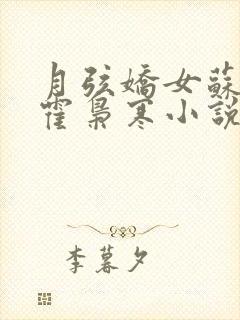 月弦嬌女蘇
霍梟寒小說
李暮夕